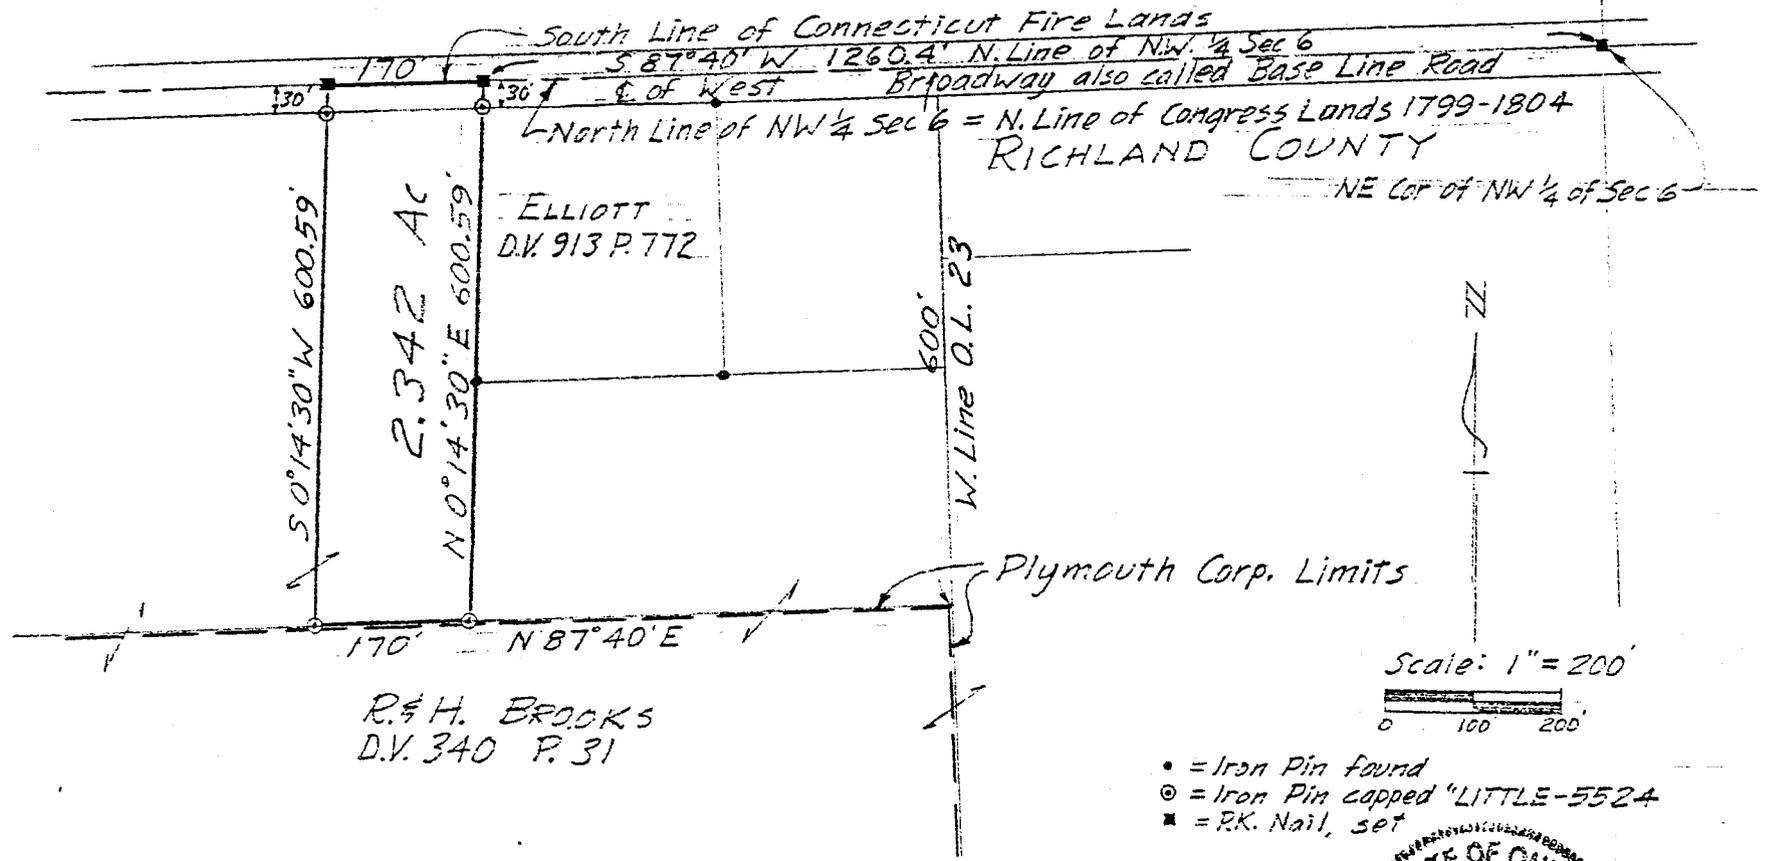 South Line of Connecticut Fire Lands
S 87°40' W 1260.4' N. Line of N.W. ¼ Sec 6
170'
℄ of West Broadway also called Base Line Road
30'
30'
North Line of NW ¼ Sec 6 = N. Line of Congress Lands 1799-1804
RICHLAND COUNTY
NE Cor of NW ¼ of Sec 6
S 0°14'30" W 600.59'
2.342 Ac
N 0°14'30" E 600.59'
ELLIOTT
D.V. 913 P. 772
600'
W. Line O.L. 23
N
Plymouth Corp. Limits
170'
N 87°40' E
R. & H. BROOKS
D.V. 340 P. 31
Scale: 1" = 200'
0 100' 200'
• = Iron Pin found
⊙ = Iron Pin capped "LITTLE-5524
■ = P.K. Nail, set
OF